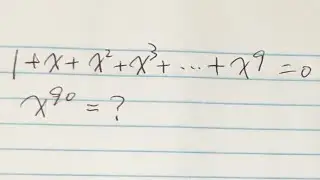 1+x+x²+x³+...+x⁹=0
x⁹⁰=?